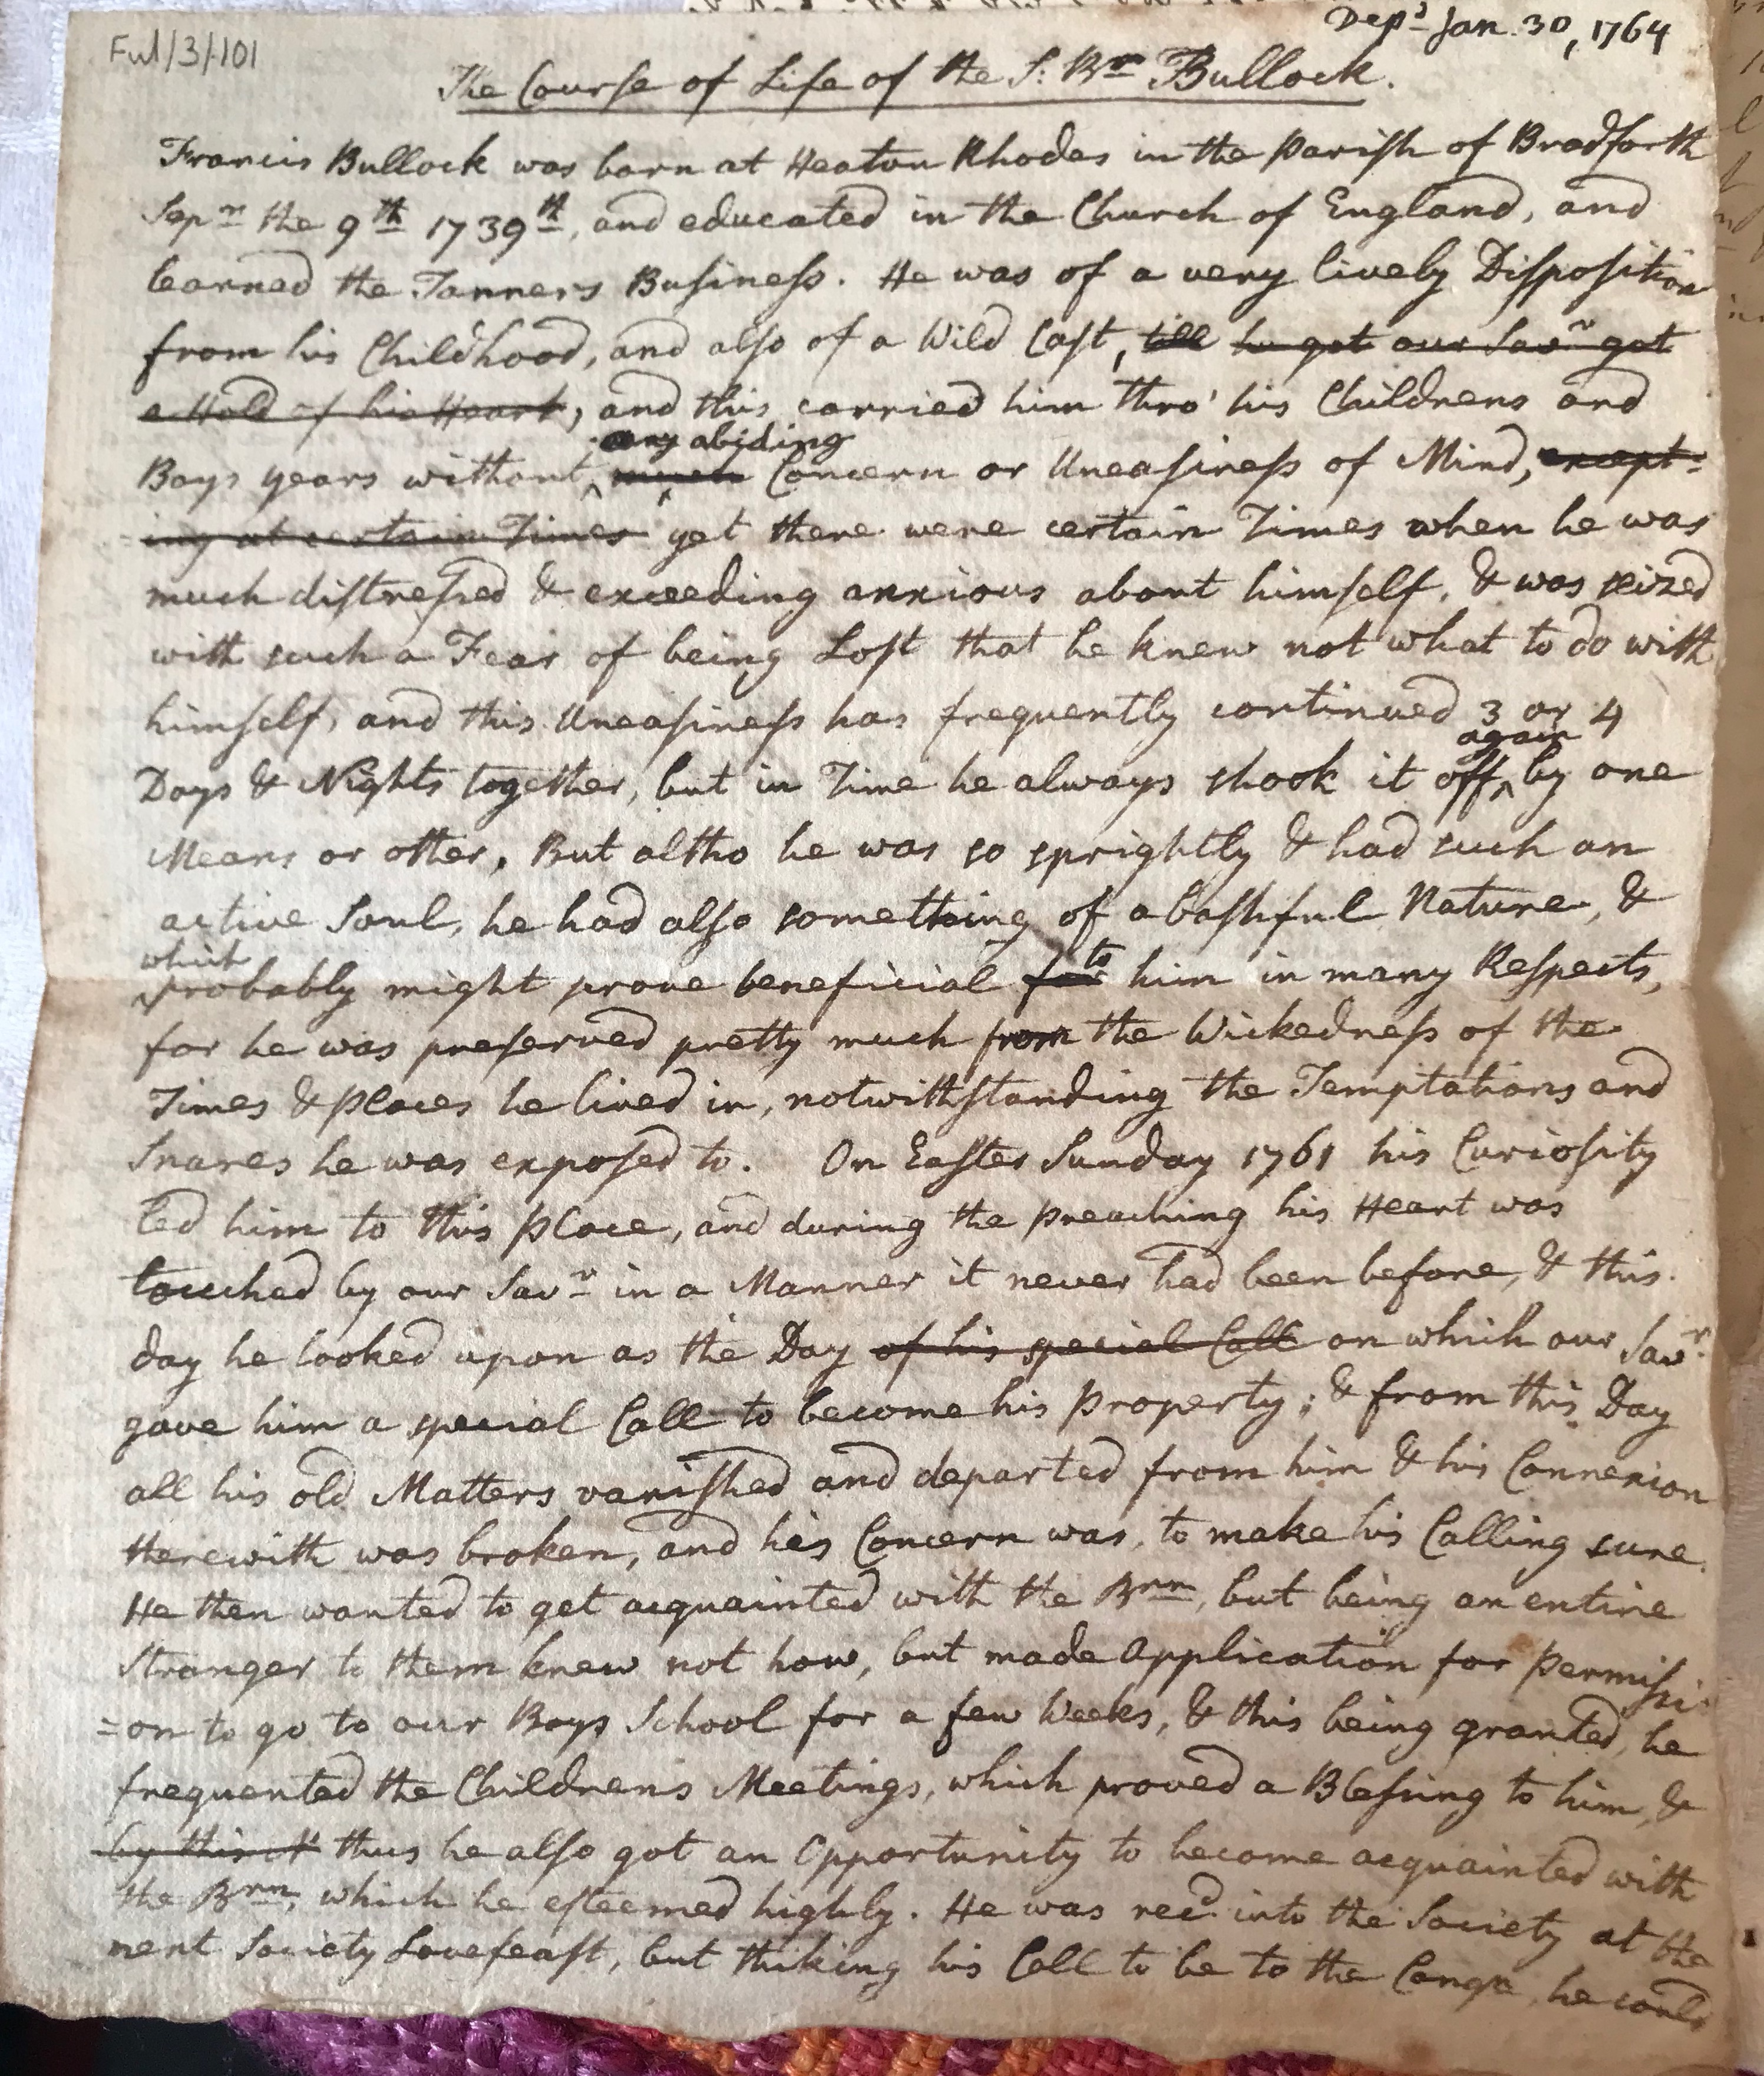 Ful/3/101
Dep.d Jan. 30, 1764
The Course of Life of the S: Br.r Bullock.
Francis Bullock was born at Heaton Rhodes in the Parish of Bradforth
Sep.r the 9th 1739th, and educated in the Church of England, and
learned the Tanners Business. He was of a very lively Disposition
from his Childhood, and also of a Wild Cast, till he got our Sav.r got
a Hold of his Heart, and this carried him thro' his Childrens and
any abiding
Boys years without much Concern or Uneasiness of Mind, except-
ing at certain Times yet there were certain Times when he was
much distressed & exceeding anxious about himself, & was seized
with such a Fear of being Lost that he knew not what to do with
himself, and this Uneasiness has frequently continued 3 or 4
again
Days & Nights together, but in Time he always shook it off, by one
Means or other, But altho he was so sprightly & had such an
active Soul, he had also something of a bashful Nature, &
which to
probably might prove beneficial for him in many Respects,
for he was preserved pretty much from the Wickedness of the
Times & places he lived in, notwithstanding the Temptations and
Snares he was exposed to. On Easter Sunday 1761 his Curiosity
led him to this place, and during the preaching his Heart was
touched by our Sav.r in a Manner it never had been before, & this
day he looked upon as the Day of his special Call on which our Sav.r
gave him a special Call to become his Property; & from this Day
all his old Matters vanished and departed from him & his Connexion
therewith was broken, and his Concern was, to make his Calling sure.
He then wanted to get acquainted with the Brrn, but being an entire
Stranger to them knew not how, but made Application for Permissi-
=on to go to our Boys School for a few Weeks, & this being granted, he
frequented the Childrens Meetings, which proved a Blessing to him, &
by this thus he also got an Opportunity to become acquainted with
the Brrn, which he esteemed highly. He was rec.d into the Society at the
next Society Lovefeast, but thiking his Call to be to the Congn, he could